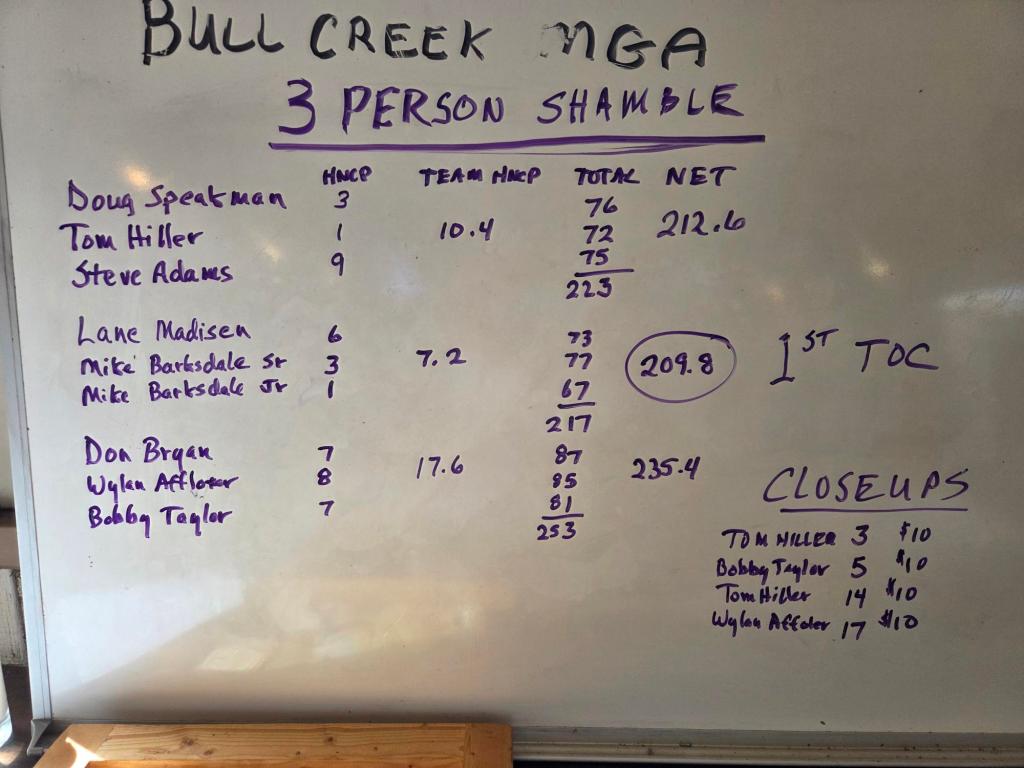 BULL CREEK MGA
3 PERSON SHAMBLE
HNCP TEAM HNCP TOTAL NET
Doug Speakman 3 76
Tom Hiller 1 10.4 72 212.6
Steve Adams 9 75
223
Lane Madisen 6 73
Mike Barksdale Sr 3 7.2 77 209.8 1ST TOC
Mike Barksdale Jr 1 67
217
Don Bryan 7 87
Wylan 8 17.6 85 235.4
Bobby Taylor 7 81
253
CLOSEUPS
TOM HILLER 3 $10
Bobby Taylor 5 $10
Tom Hiller 14 $10
Wylan 17 $10